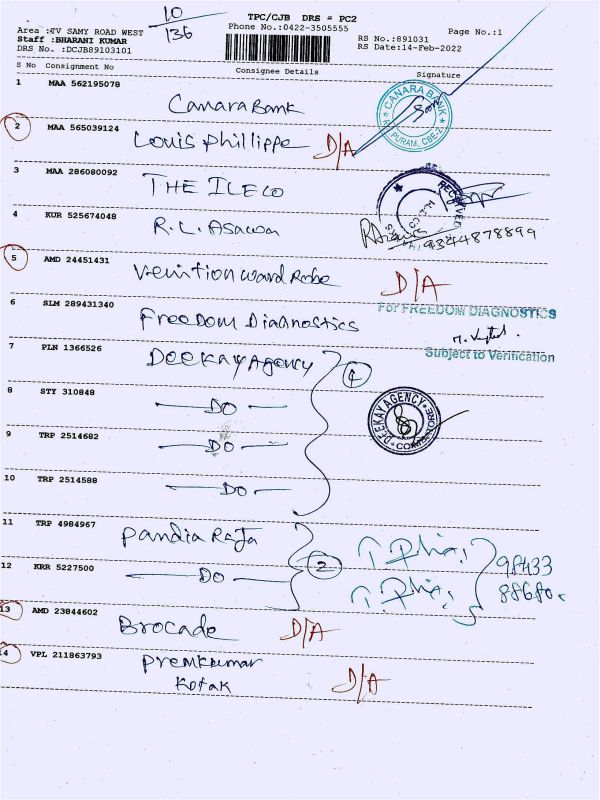 10
136
TPC/CJB DRS = PC2
Phone No.:0422-3505555
Page No.:1
Area :TV SAMY ROAD WEST
Staff :BHARANI KUMAR
DRS No. :DCJB89103101
RS No.:891031
RS Date:14-Feb-2022
S No Consignment No Consignee Details Signature
1 MAA 562195078
Canara Bank
CANARA BANK
PURAM, CBE-2
2 MAA 565039124
Louis Phillippe D/A
3 MAA 286080092
THE ILECO
RECEIVED
4 KUR 525674048
R.L. Asawa
9344878899
5 AMD 24451431
Venition Ward Robe D/A
For FREEDOM DIAGNOSTICS
6 SLM 289431340
Freedom Diagnostics
Subject to Verification
7 PLN 1366526
DEEKAY Agency
4
8 STY 310848
DO
DEEKAY AGENCY
COIMBATORE
9 TRP 2514682
DO
10 TRP 2514588
DO
11 TRP 4984967
Pandia Raja
98433
12 KRR 5227500
DO
2
88680
13 AMD 23844602
Brocade D/A
14 VPL 211863793
Premkumar
Kotak D/A